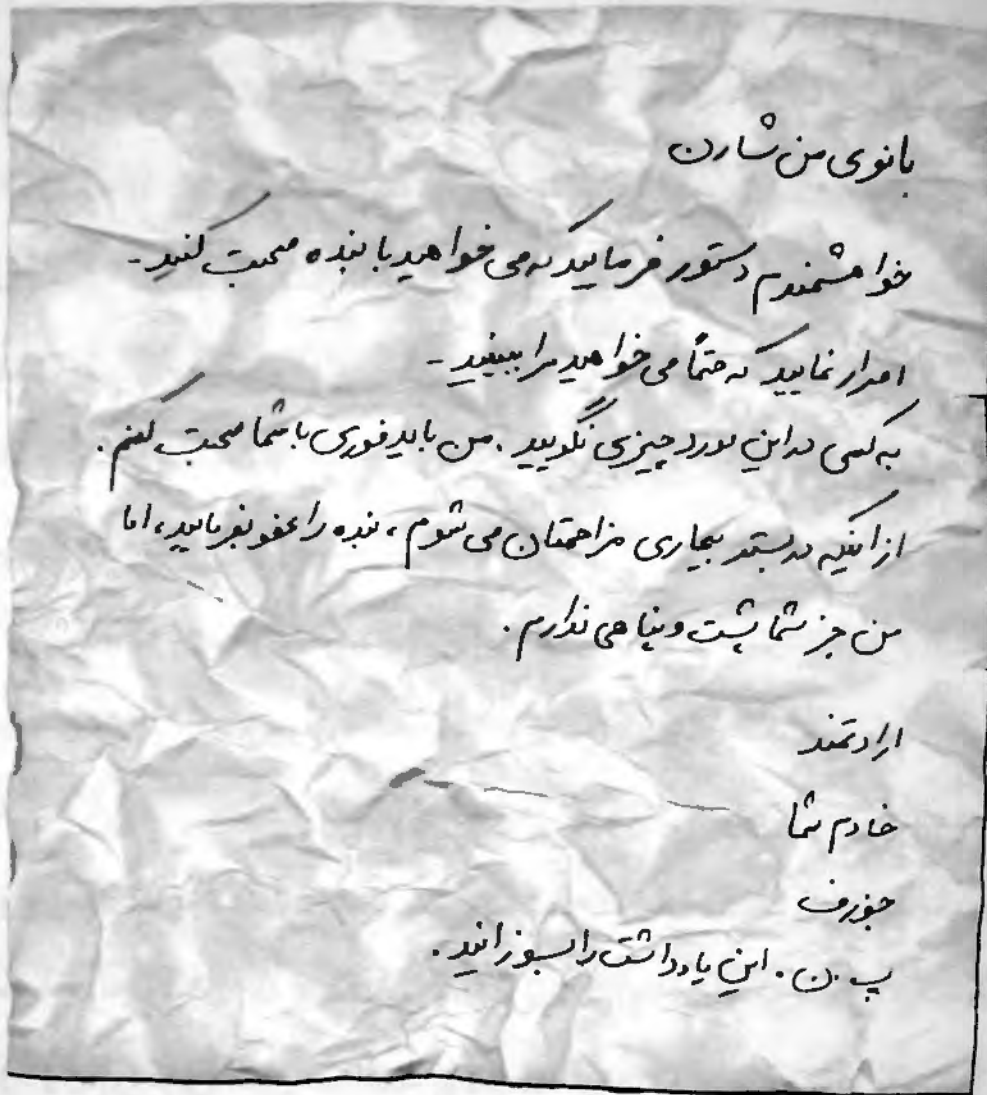 بانوی من شارن
خواهشمندم دستور فرمایید که می خواهید با بنده صحبت کنید-
اصرار نمایید که حتماً می خواهید مرا ببینید-
به کسی در این مورد چیزی نگویید. من باید فوری با شما صحبت کنم.
از اینکه در بستر بیماری مزاحمتان می شوم، بنده را عفو بفرمایید، اما
من جز شما پشت و پناهی ندارم.
ارادتمند
خادم شما
جوزف
پ.ن. این یادداشت را بسوزانید.